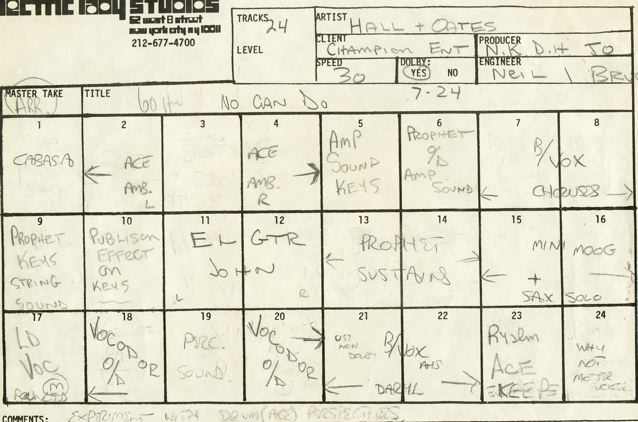 Electric lady studios
52 west 8 street
new york city ny 10011
212-677-4700
TRACKS 24
LEVEL
ARTIST HALL + OATES
CLIENT Champion Ent
PRODUCER N.K.D.H JO
SPEED 30
DOLBY: YES NO
ENGINEER Neil
7-24
MASTER TAKE
TITLE NO CAN DO
1 2 3 4 5 6 7 8
CABASA
ACE
AMB.
L
ACE
AMB.
R
AMP
SOUND
KEYS
PROPHET
O/D
AMP
SOUND
B/VOX
CHORUSES
9 10 11 12 13 14 15 16
PROPHET
KEYS
STRING
SOUND
PUBLISON
EFFECT
ON
KEYS
EL GTR
JOHN
L R
PROPHET
SUSTAINS
MINI MOOG
+
SAX SOLO
17 18 19 20 21 22 23 24
LD
VOC
VOCODOR
O/D
PERC.
SOUND
VOCODOR
O/D
B/VOX
DARYL
Rythm
ACE
KEEPS
WHY
NOT
COMMENTS: EXPERIMENT WITH DRUM (ACE) PERSPECTIVES